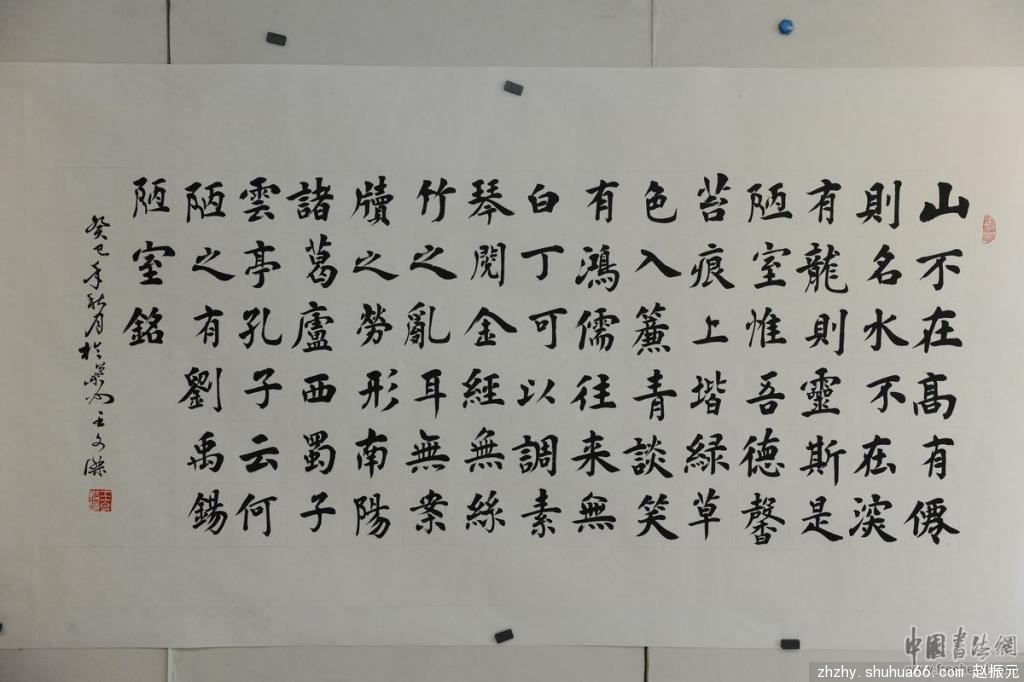 山不在高有僊
則名水不在深
有龍則靈斯是
陋室惟吾德馨
苔痕上堦綠草
色入簾青談笑
有鴻儒往来無
白丁可以調素
琴閱金經無絲
竹之亂耳無案
牘之勞形南陽
諸葛廬西蜀子
雲亭孔子云何
陋之有劉禹錫
陋室銘
癸巳年秋月於王文傑
中國書法網
zhzhy.shuhua66.com 赵振元